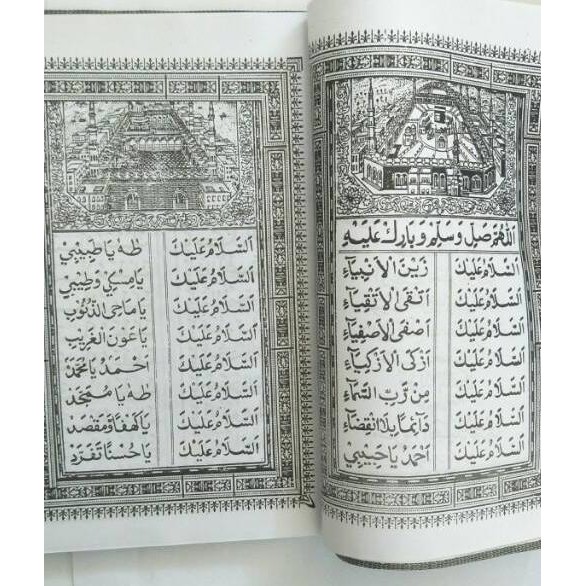 اَللّٰهُمَّ صَلِّ وَسَلِّمْ وَبَارِكْ عَلَيْهِ
اَلسَّلَامُ عَلَيْكَ زَيْنَ الْاَنْبِيَاءِ
اَلسَّلَامُ عَلَيْكَ اَتْقَى الْاَتْقِيَاءِ
اَلسَّلَامُ عَلَيْكَ اَصْفَى الْاَصْفِيَاءِ
اَلسَّلَامُ عَلَيْكَ اَزْكَى الْاَزْكِيَاءِ
اَلسَّلَامُ عَلَيْكَ مِنْ رَّبِّ السَّمَاءِ
اَلسَّلَامُ عَلَيْكَ دَآئِمًا بِلَا انْقِضَاءِ
اَلسَّلَامُ عَلَيْكَ اَحْمَدُ يَا حَبِيْبِيْ
اَلسَّلَامُ عَلَيْكَ طٰهٰ يَا طَبِيْبِيْ
اَلسَّلَامُ عَلَيْكَ يَا مِسْكِيْ وَطِيْبِيْ
اَلسَّلَامُ عَلَيْكَ يَا مَاحِيَ الذُّنُوْبِ
اَلسَّلَامُ عَلَيْكَ يَا عَوْنَ الْغَرِيْبِ
اَلسَّلَامُ عَلَيْكَ اَحْمَدُ يَا مُحَمَّدُ
اَلسَّلَامُ عَلَيْكَ طٰهٰ يَا مُمَجَّدُ
اَلسَّلَامُ عَلَيْكَ يَا كَهْفًا وَمَقْصَدُ
اَلسَّلَامُ عَلَيْكَ يَا حُسْنًا تَفَرَّدُ